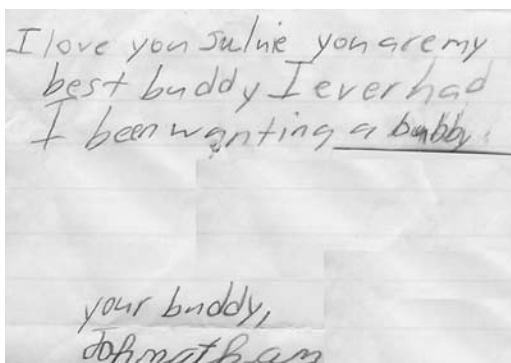 I love you Julnie you are my
best buddy I ever had
I been wanting a bubby.
your buddy,
Johnatham